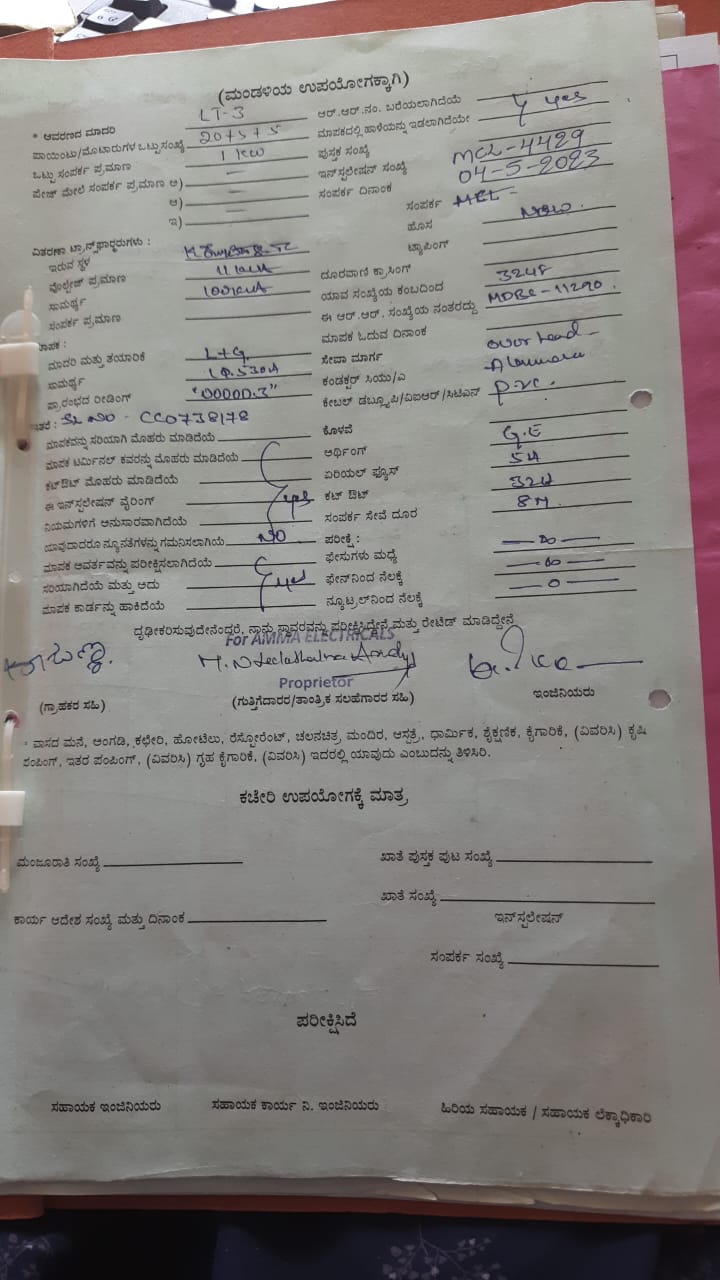 (ಮಂಡಳಿಯ ಉಪಯೋಗಕ್ಕಾಗಿ)
* ಆವರಣದ ಮಾದರಿ LT-3 ಆರ್.ಆರ್.ನಂ. ಬರೆಯಲಾಗಿದೆಯೆ
ಪಾಯಿಂಟು/ಮೊಟಾರುಗಳ ಒಟ್ಟುಸಂಖ್ಯೆ 20+5+5 ಮಾಪಕದಲ್ಲಿ ಹಾಳೆಯನ್ನು ಇಡಲಾಗಿದೆಯೇ yes
ಒಟ್ಟು ಸಂಪರ್ಕ ಪ್ರಮಾಣ 1 KW ಪುಸ್ತಕ ಸಂಖ್ಯೆ
ಪೇಜ್ ಮೇಲೆ ಸಂಪರ್ಕ ಪ್ರಮಾಣ ಅ) — ಇನ್‌ಸ್ಟಲೇಷನ್ ಸಂಖ್ಯೆ MCL-4429
ಆ) — ಸಂಪರ್ಕ ದಿನಾಂಕ 04-5-2023
ಇ) — ಸಂಪರ್ಕ
ವಿತರಣಾ ಟ್ರಾನ್ಸ್‌ಫಾರ್ಮರುಗಳು : ಹೊಸ New.
ಇರುವ ಸ್ಥಳ ಟ್ಯಾಪಿಂಗ್
ವೊಲ್ಟೇಜ್ ಪ್ರಮಾಣ ದೂರವಾಣಿ ಕ್ರಾಸಿಂಗ್
ಸಾಮರ್ಥ್ಯ ಯಾವ ಸಂಖ್ಯೆಯ ಕಂಬದಿಂದ 3248
ಸಂಪರ್ಕ ಪ್ರಮಾಣ ಈ ಆರ್.ಆರ್. ಸಂಖ್ಯೆಯ ನಂತರದ್ದು -11290
ಮಾಪಕ : ಮಾಪಕ ಓದುವ ದಿನಾಂಕ
ಮಾದರಿ ಮತ್ತು ತಯಾರಿಕೆ L+G. ಸೇವಾ ಮಾರ್ಗ over head
ಸಾಮರ್ಥ್ಯ ಕಂಡಕ್ಟರ್ ಸಿಯು/ಎ
ಪ್ರಾರಂಭದ ರೀಡಿಂಗ್ "00000.3" ಕೇಬಲ್ ಡಬ್ಲ್ಯೂಪಿ/ವಿಐಆರ್/ಸಿಟಿಎಸ್ pvc.
ಇತರೆ : SL NO - CC0738178
ಮಾಪಕವನ್ನು ಸರಿಯಾಗಿ ಮೊಹರು ಮಾಡಿದೆಯೆ ಕೊಳವೆ
ಮಾಪಕ ಟರ್ಮಿನಲ್ ಕವರನ್ನು ಮೊಹರು ಮಾಡಿದೆಯೆ ಅರ್ಥಿಂಗ್ G.E
ಕಟ್‌ಔಟ್ ಮೊಹರು ಮಾಡಿದೆಯೆ ಏರಿಯಲ್ ಫ್ಯೂಸ್
ಈ ಇನ್‌ಸ್ಟಲೇಷನ್ ವೈರಿಂಗ್ yes ಕಟ್ ಔಟ್
ನಿಯಮಗಳಿಗೆ ಅನುಸಾರವಾಗಿದೆಯೆ ಸಂಪರ್ಕ ಸೇವೆ ದೂರ 8M.
ಯಾವುದಾದರೂ ನ್ಯೂನತೆಗಳನ್ನು ಗಮನಿಸಲಾಗಿಯೆ NO ಪರೀಕ್ಷೆ :
ಮಾಪಕ ಆವರ್ತವನ್ನು ಪರೀಕ್ಷಿಸಲಾಗಿದೆಯೆ ಫೇಸುಗಳು ಮಧ್ಯೆ
ಸರಿಯಾಗಿದೆಯೆ ಮತ್ತು ಅದು yes ಫೇಸ್‌ನಿಂದ ನೆಲಕ್ಕೆ
ಮಾಪಕ ಕಾರ್ಡನ್ನು ಹಾಕಿದೆಯೆ ನ್ಯೂಟ್ರಲ್‌ನಿಂದ ನೆಲಕ್ಕೆ
ದೃಢೀಕರಿಸುವುದೇನೆಂದರೆ, ನಾನು ಸ್ಥಾವರವನ್ನು ಪರೀಕ್ಷಿಸಿದ್ದೇನೆ ಮತ್ತು ರೇಟೆಡ್ ಮಾಡಿದ್ದೇನೆ
For AMMA ELECTRICALS
Proprietor
(ಗ್ರಾಹಕರ ಸಹಿ) (ಗುತ್ತಿಗೆದಾರರ/ತಾಂತ್ರಿಕ ಸಲಹೆಗಾರರ ಸಹಿ) ಇಂಜಿನಿಯರು
* ವಾಸದ ಮನೆ, ಅಂಗಡಿ, ಕಛೇರಿ, ಹೋಟೆಲು, ರೆಸ್ಟೋರೆಂಟ್, ಚಲನಚಿತ್ರ, ಮಂದಿರ, ಆಸ್ಪತ್ರೆ, ಧಾರ್ಮಿಕ, ಶೈಕ್ಷಣಿಕ, ಕೈಗಾರಿಕೆ, (ವಿವರಿಸಿ) ಕೃಷಿ
ಪಂಪಿಂಗ್, ಇತರ ಪಂಪಿಂಗ್, (ವಿವರಿಸಿ) ಗೃಹ ಕೈಗಾರಿಕೆ, (ವಿವರಿಸಿ) ಇದರಲ್ಲಿ ಯಾವುದು ಎಂಬುದನ್ನು ತಿಳಿಸಿರಿ.
ಕಚೇರಿ ಉಪಯೋಗಕ್ಕೆ ಮಾತ್ರ
ಮಂಜೂರಾತಿ ಸಂಖ್ಯೆ ಖಾತೆ ಪುಸ್ತಕ ಪುಟ ಸಂಖ್ಯೆ
ಖಾತೆ ಸಂಖ್ಯೆ
ಕಾರ್ಯ ಆದೇಶ ಸಂಖ್ಯೆ ಮತ್ತು ದಿನಾಂಕ ಇನ್‌ಸ್ಟಲೇಷನ್
ಸಂಪರ್ಕ ಸಂಖ್ಯೆ
ಪರೀಕ್ಷಿಸಿದೆ
ಸಹಾಯಕ ಇಂಜಿನಿಯರು ಸಹಾಯಕ ಕಾರ್ಯ ನಿ. ಇಂಜಿನಿಯರು ಹಿರಿಯ ಸಹಾಯಕ / ಸಹಾಯಕ ಲೆಕ್ಕಾಧಿಕಾರಿ